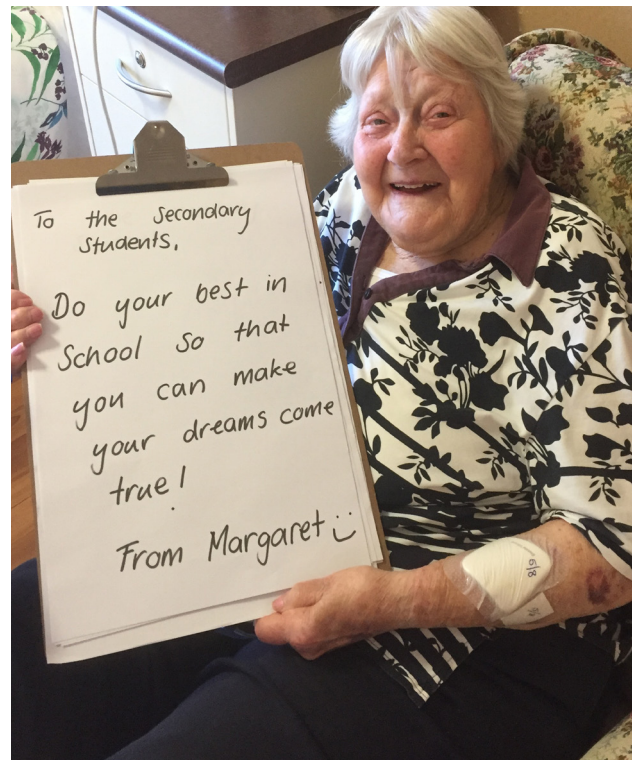 To the Secondary
Students,
Do your best in
School so that
you can make
your dreams come
true!
From Margaret :)
6/8